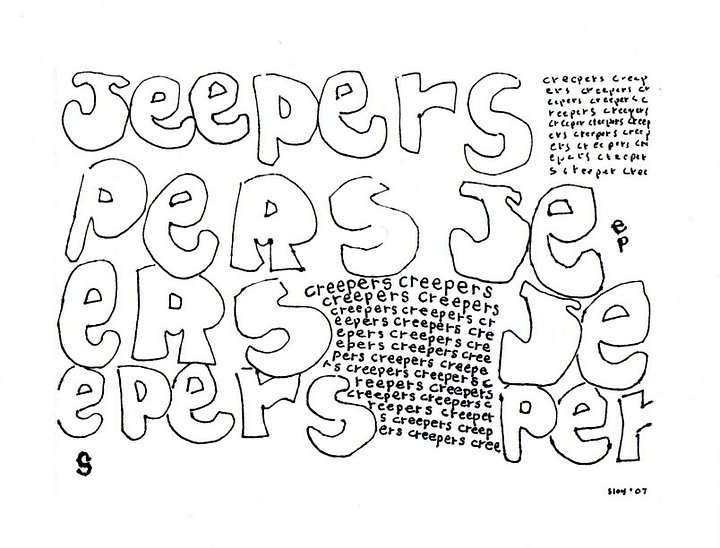 Jeepers
creepers creep
ers creepers cr
eepers creepers c
reepers creepers
creeper creepers creep
ers creepers creep
ers creepers cre
epers creeper
s creeper cree
PeRS Je
e
p
eRS
creepers creepers
creepers creepers
creepers creepers cr
eepers creepers cre
epers creepers cre
epers creepers cree
pers creepers creepe
rs creepers creepers c
reepers creepers
creepers creepers c
reepers creeper
s creepers creep
ers creepers cree
Je
epers
per
s
'07